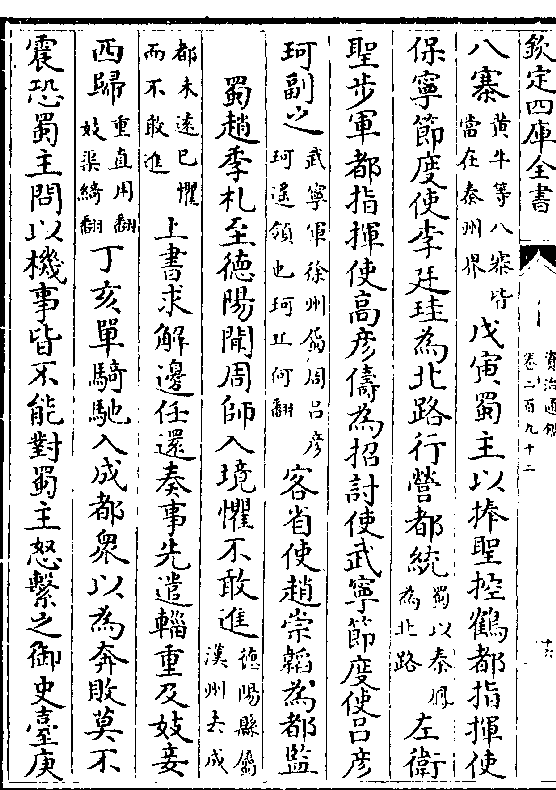 欽定四庫全書
資治通鑑
卷二百九十二
十六
八寨黄牛等八寨皆當在秦州界戊寅蜀主以捧聖控鶴都指揮使
保寧節度使李廷珪為北路行營都統蜀以秦鳳為北路左衛
聖步軍都指揮使高彦儔為招討使武寧節度使吕彦
珂副之武寧軍徐州屬周吕彦珂遥領也珂丘何翻客省使趙崇韜為都監
蜀趙季札至徳陽聞周師入境懼不敢進徳陽縣屬漢州去成
都未逺已懼而不敢進上書求解邊任還奏事先遣輜重及妓妾
西歸重直用翻妓渠綺翻丁亥單騎馳入成都衆以為奔敗莫不
震恐蜀主問以機事皆不能對蜀主怒繫之御史臺庚